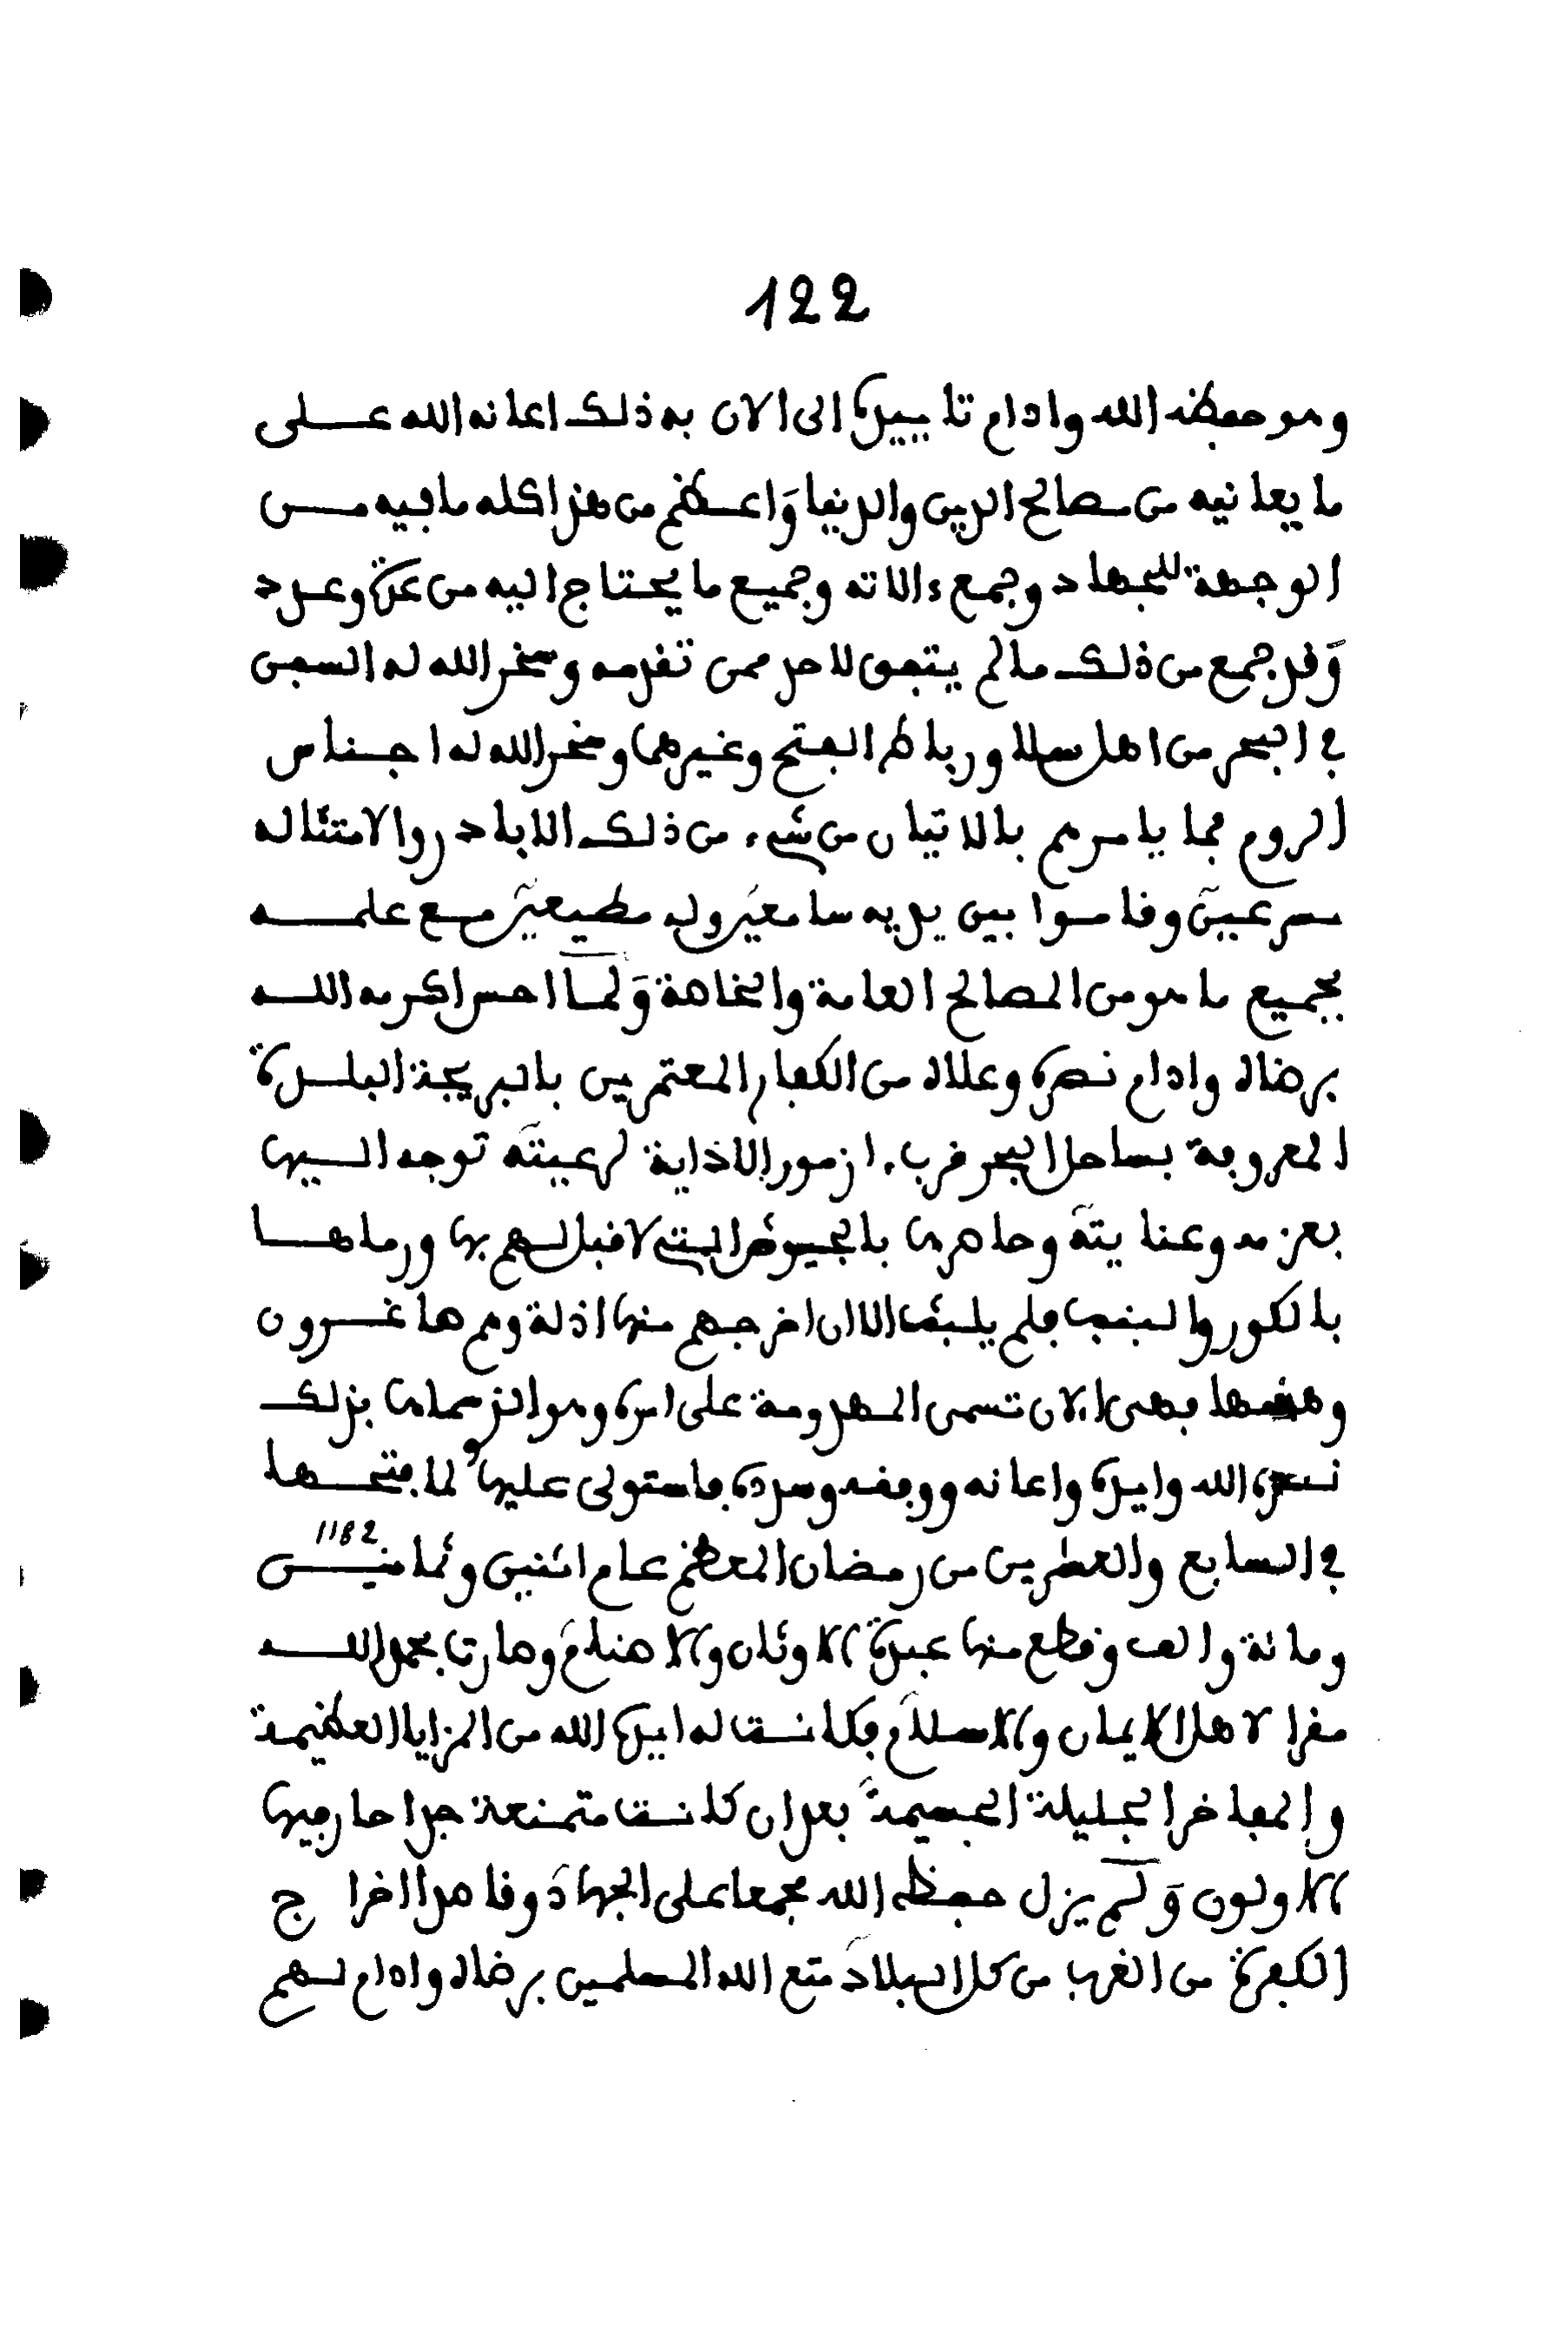 122
وهو حفظه الله وادام تاييده الى الان به ذلك اعانه الله على
ما يعانيه من مصالح الدين والدنيا وَاعظم من هذا كله ما فيه من
الوجهة للجهاد وجمع ءالاته وجميع ما يحتاج اليه من عدّة وعدد
وَقد جمع من ذلك ما لم يتفق لاحد ممن تقدمه وسخر الله له السفن
في البحر من اهل سلا ورباط الفتح وغيرهما وسخر الله له اجناس
الروم فما يامرهم بالاتيان من شيء من ذلك الا بادروا لامتثاله
مسرعين وقاموا بين يديه سامعين وله مطيعين مع علمه
بجميع ما هو من المصالح العامة والخاصة وَلما احس اكرمه الله
برضاه وادام نصره وعلاه من الكفار المعتمرين بالبريجة البلدة
المعروفة بساحل البحر قرب ازمور الاذاية لرعيته توجه اليها
بعزمه وعنايته وحاصرها بالجيوش التي لا قبل لهم بها ورماها
بالكور والبنب فلم يلبث الا ان اخرجهم منها اذلة وهم صاغرون
وهدمها فهى الان تسمى المهدومة على امره وهو الذي سماها بذلك
نصره الله وايده واعانه ووفقه وسدده فاستولى عليها لما فتحها
في السابع والعشرين من رمضان المعظم عام اثنين وثمانين 1182
ومائة والف وقطع منها عبدة الاوثان والاصنام وصارت بحمد الله
مقرا لاهل الايمان والاسلام فكانت له ايده الله من المزايا العظيمة
والمفاخر الجليلة الجسيمة بعد ان كانت متمنعة جدا حار فيها
الاولون وَلم يزل حفظه الله مجمعا على الجهاد وقاصدا اخراج
الكفرة من الغرب من كل البلاد متع الله المسلمين برضاه وادام لهم